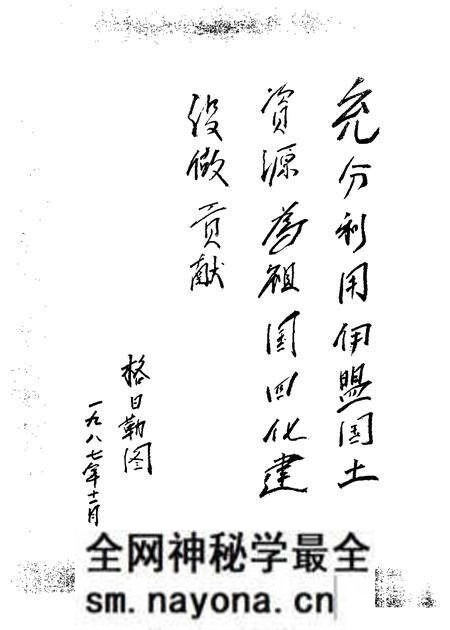 充分利用伊盟国土
资源为祖国四化建
设做贡献
格日勒图
一九八七年十二月
全网神秘学最全
sm.nayona.cn